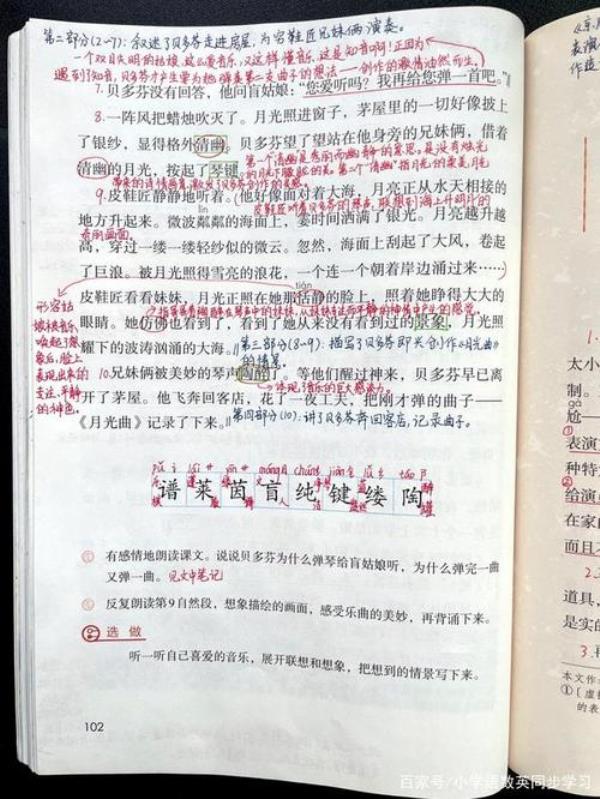 第二部分(2~7)：叙述了贝多芬走进房屋，为穷鞋匠兄妹俩演奏。
一个双目失明的姑娘，这么爱音乐，又这样懂音乐，这是知音啊！正因为
遇到了知音，贝多芬才产生要为她弹奏第二支曲子的想法——创作的激情油然而生。
7.贝多芬没有回答，他问盲姑娘：“您爱听吗？我再给您弹一首吧。”
8.一阵风把蜡烛吹灭了。月光照进窗子，茅屋里的一切好像披上
了银纱，显得格外清幽。贝多芬望了望站在他身旁的兄妹俩，借着
清幽的月光，按起了琴键。
9.皮鞋匠静静地听着。他好像面对着大海，月亮正从水天相接的
lín
地方升起来。微波粼粼的海面上，霎时间洒满了银光。月亮越升越
高，穿过一缕一缕轻纱似的微云。忽然，海面上刮起了大风，卷起
了巨浪。被月光照得雪亮的浪花，一个连一个朝着岸边涌过来……
tián
皮鞋匠看看妹妹，月光正照在她那恬静的脸上，照着她睁得大大的
眼睛。她仿佛也看到了，看到了她从来没有看到过的景象，月光照
耀下的波涛汹涌的大海。
第三部分(8~9)：描写了贝多芬即兴创作《月光曲》
的情景。
10.兄妹俩被美妙的琴声陶醉了。等他们醒过神来，贝多芬早已离
体现了音乐的巨大感染力。
开了茅屋。他飞奔回客店，花了一夜工夫，把刚才弹的曲子——
《月光曲》记录了下来。
第四部分(10)：讲了贝多芬奔回客店，记录曲子。
谱莱茵盲纯键缕陶
有感情地朗读课文。说说贝多芬为什么弹琴给盲姑娘听，为什么弹完一曲
又弹一曲。见文中笔记
反复朗读第9自然段，想象描绘的画面，感受乐曲的美妙，再背诵下来。
选做
听一听自己喜爱的音乐，展开联想和想象，把想到的情景写下来。
102
太小
制。
gā
尬——
表演
种特
给演
在家
而且
2.
道具，
是实的
3.
本文作
①〔虚
的表
百家号/小学语数英同步学习